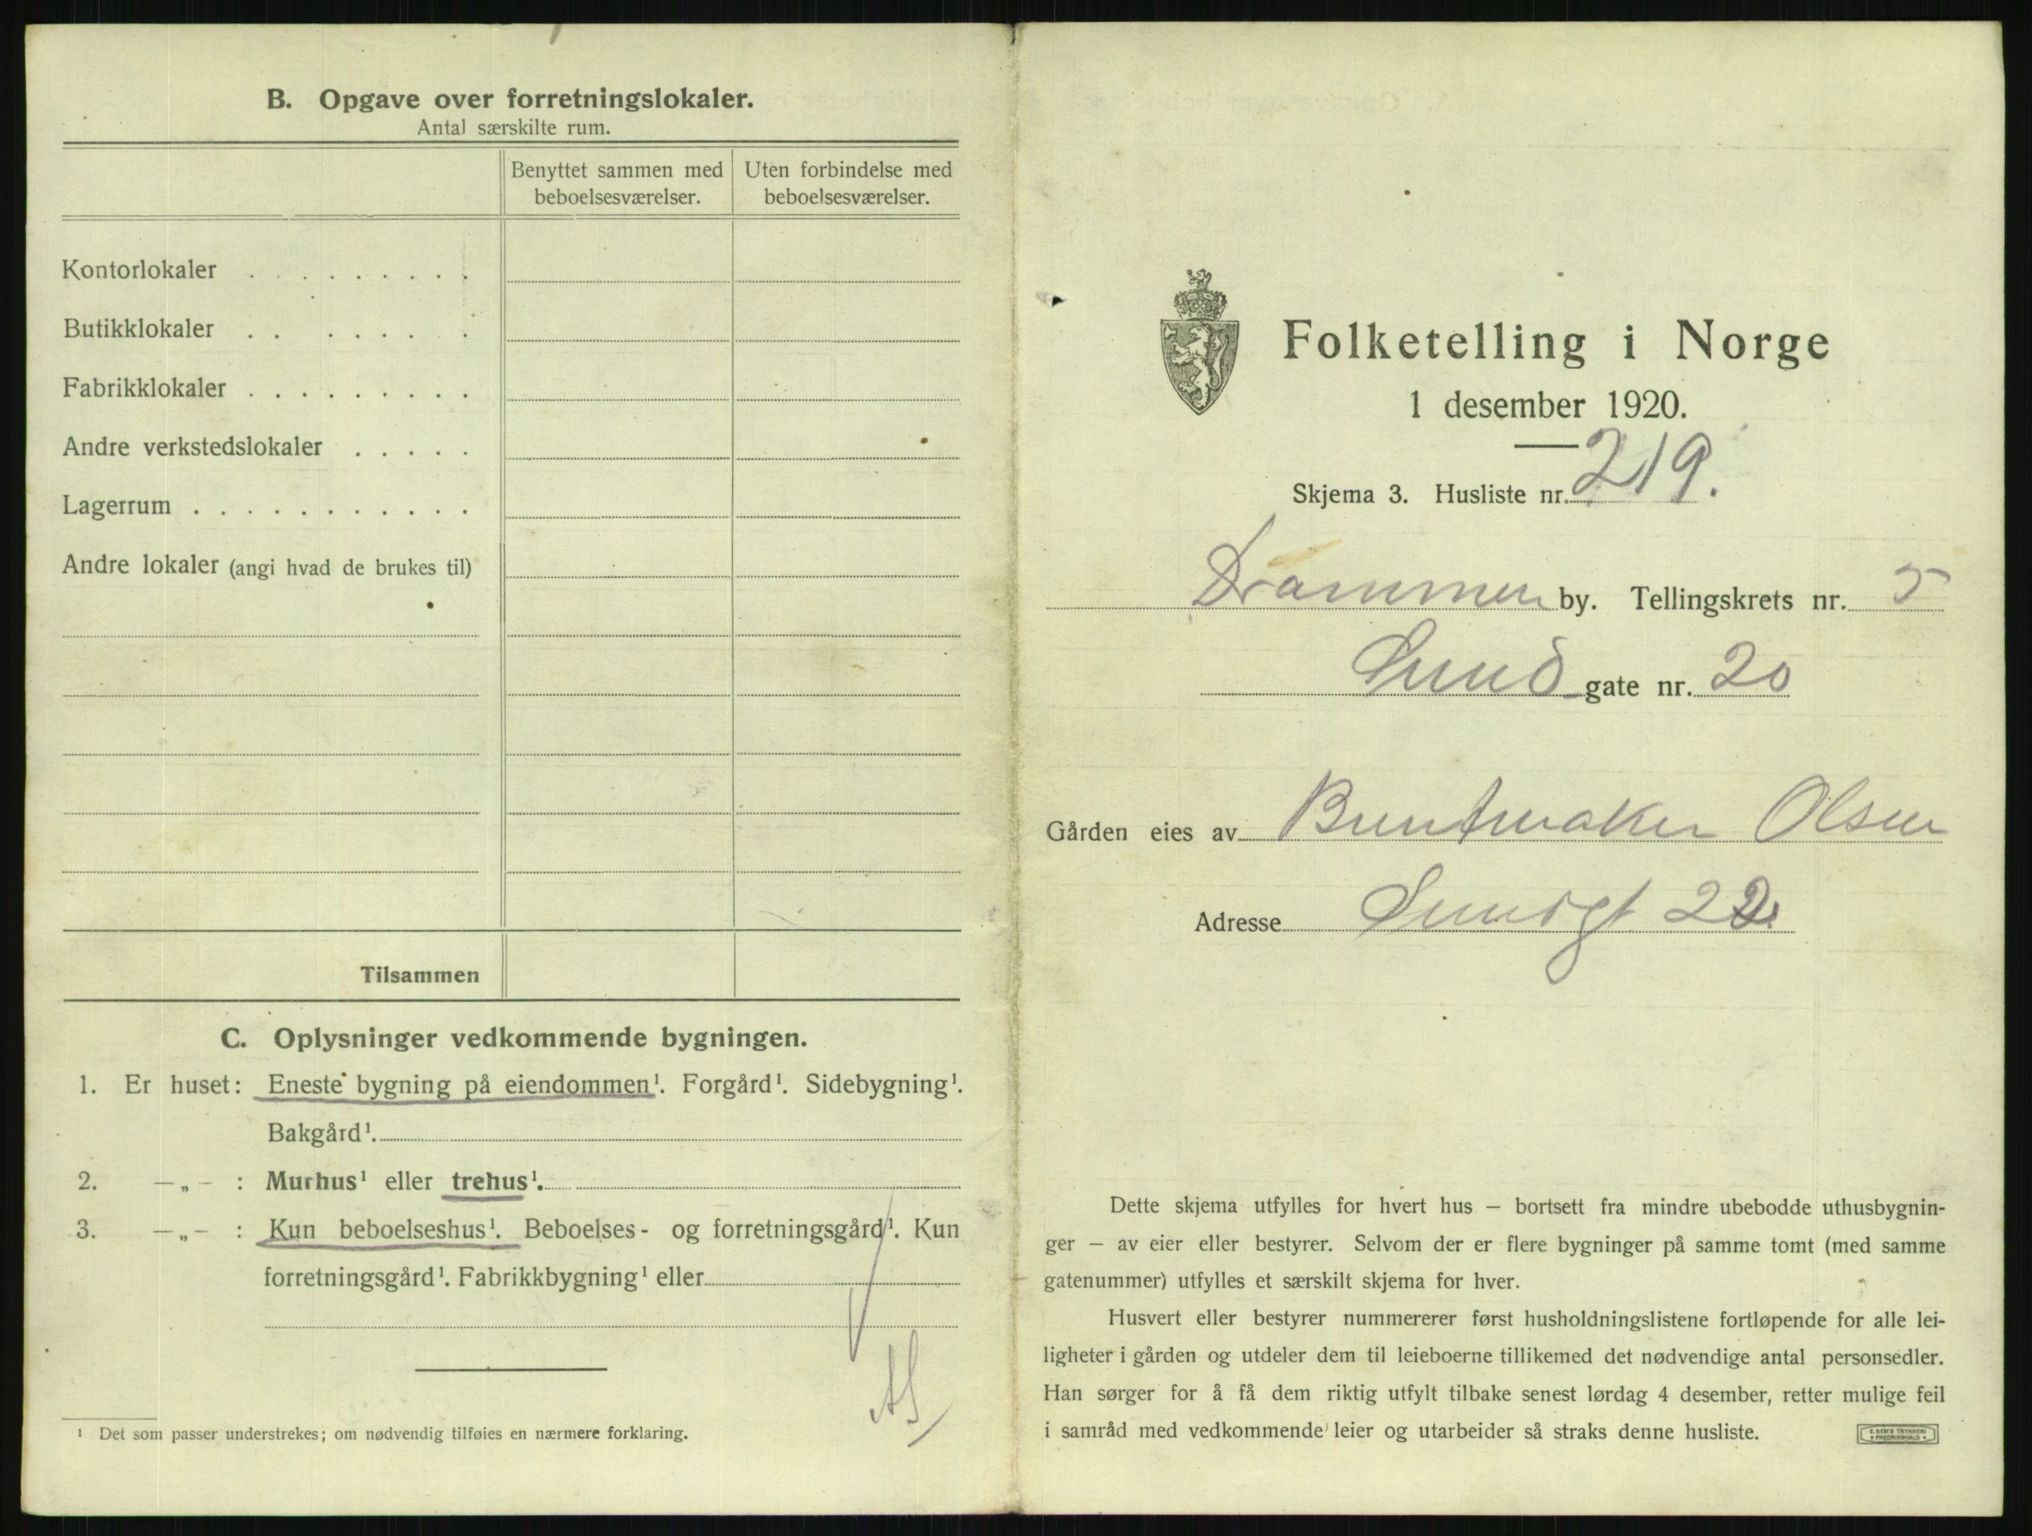 B. Opgave over forretningslokaler.
Antal særskilte rum.
Benyttet sammen med beboelsesværelser.
Uten forbindelse med beboelsesværelser.
Kontorlokaler . . . . . . . . .
Butikklokaler . . . . . . .
Fabrikklokaler . . . . . . . . .
Andre verkstedslokaler . . . . .
Lagerrum . . . . . . . . . . .
Andre lokaler (angi hvad de brukes til)
Tilsammen
C. Oplysninger vedkommende bygningen.
1. Er huset: Eneste bygning på eiendommen¹. Forgård¹. Sidebygning¹.
Bakgård¹.
2. —„— : Murhus¹ eller trehus¹.
3. —„— : Kun beboelseshus¹. Beboelses- og forretningsgård¹. Kun
forretningsgård¹. Fabrikkbygning¹ eller
AS
¹ Det som passer understrekes; om nødvendig tilføies en nærmere forklaring.
Folketelling i Norge
1 desember 1920.
Skjema 3. Husliste nr. 219.
Drammen by. Tellingskrets nr. 5
Sund gate nr. 20
Gården eies av Buntmaker Olsen
Adresse Sundgt 22.
Dette skjema utfylles for hvert hus — bortsett fra mindre ubebodde uthusbygnin-
ger — av eier eller bestyrer. Selvom der er flere bygninger på samme tomt (med samme
gatenummer) utfylles et særskilt skjema for hver.
Husvert eller bestyrer nummererer først husholdningslistene fortløpende for alle lei-
ligheter i gården og utdeler dem til leieboerne tillikemed det nødvendige antal personsedler.
Han sørger for å få dem riktig utfylt tilbake senest lørdag 4 desember, retter mulige feil
i samråd med vedkommende leier og utarbeider så straks denne husliste.
E. SEM'S TRYKKERI
FREDRIKSHALD